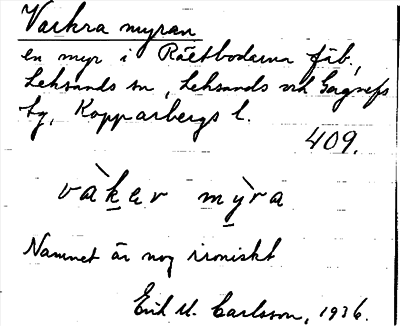 Vackra myran
en myr i Rältbodarna fäb.,
Leksands sn, Leksands och Gagnefs
tg, Kopparbergs l.
409.
và̀kεr mỳra
Namnet är nog ironiskt
Erik M. Carlsson, 1936.